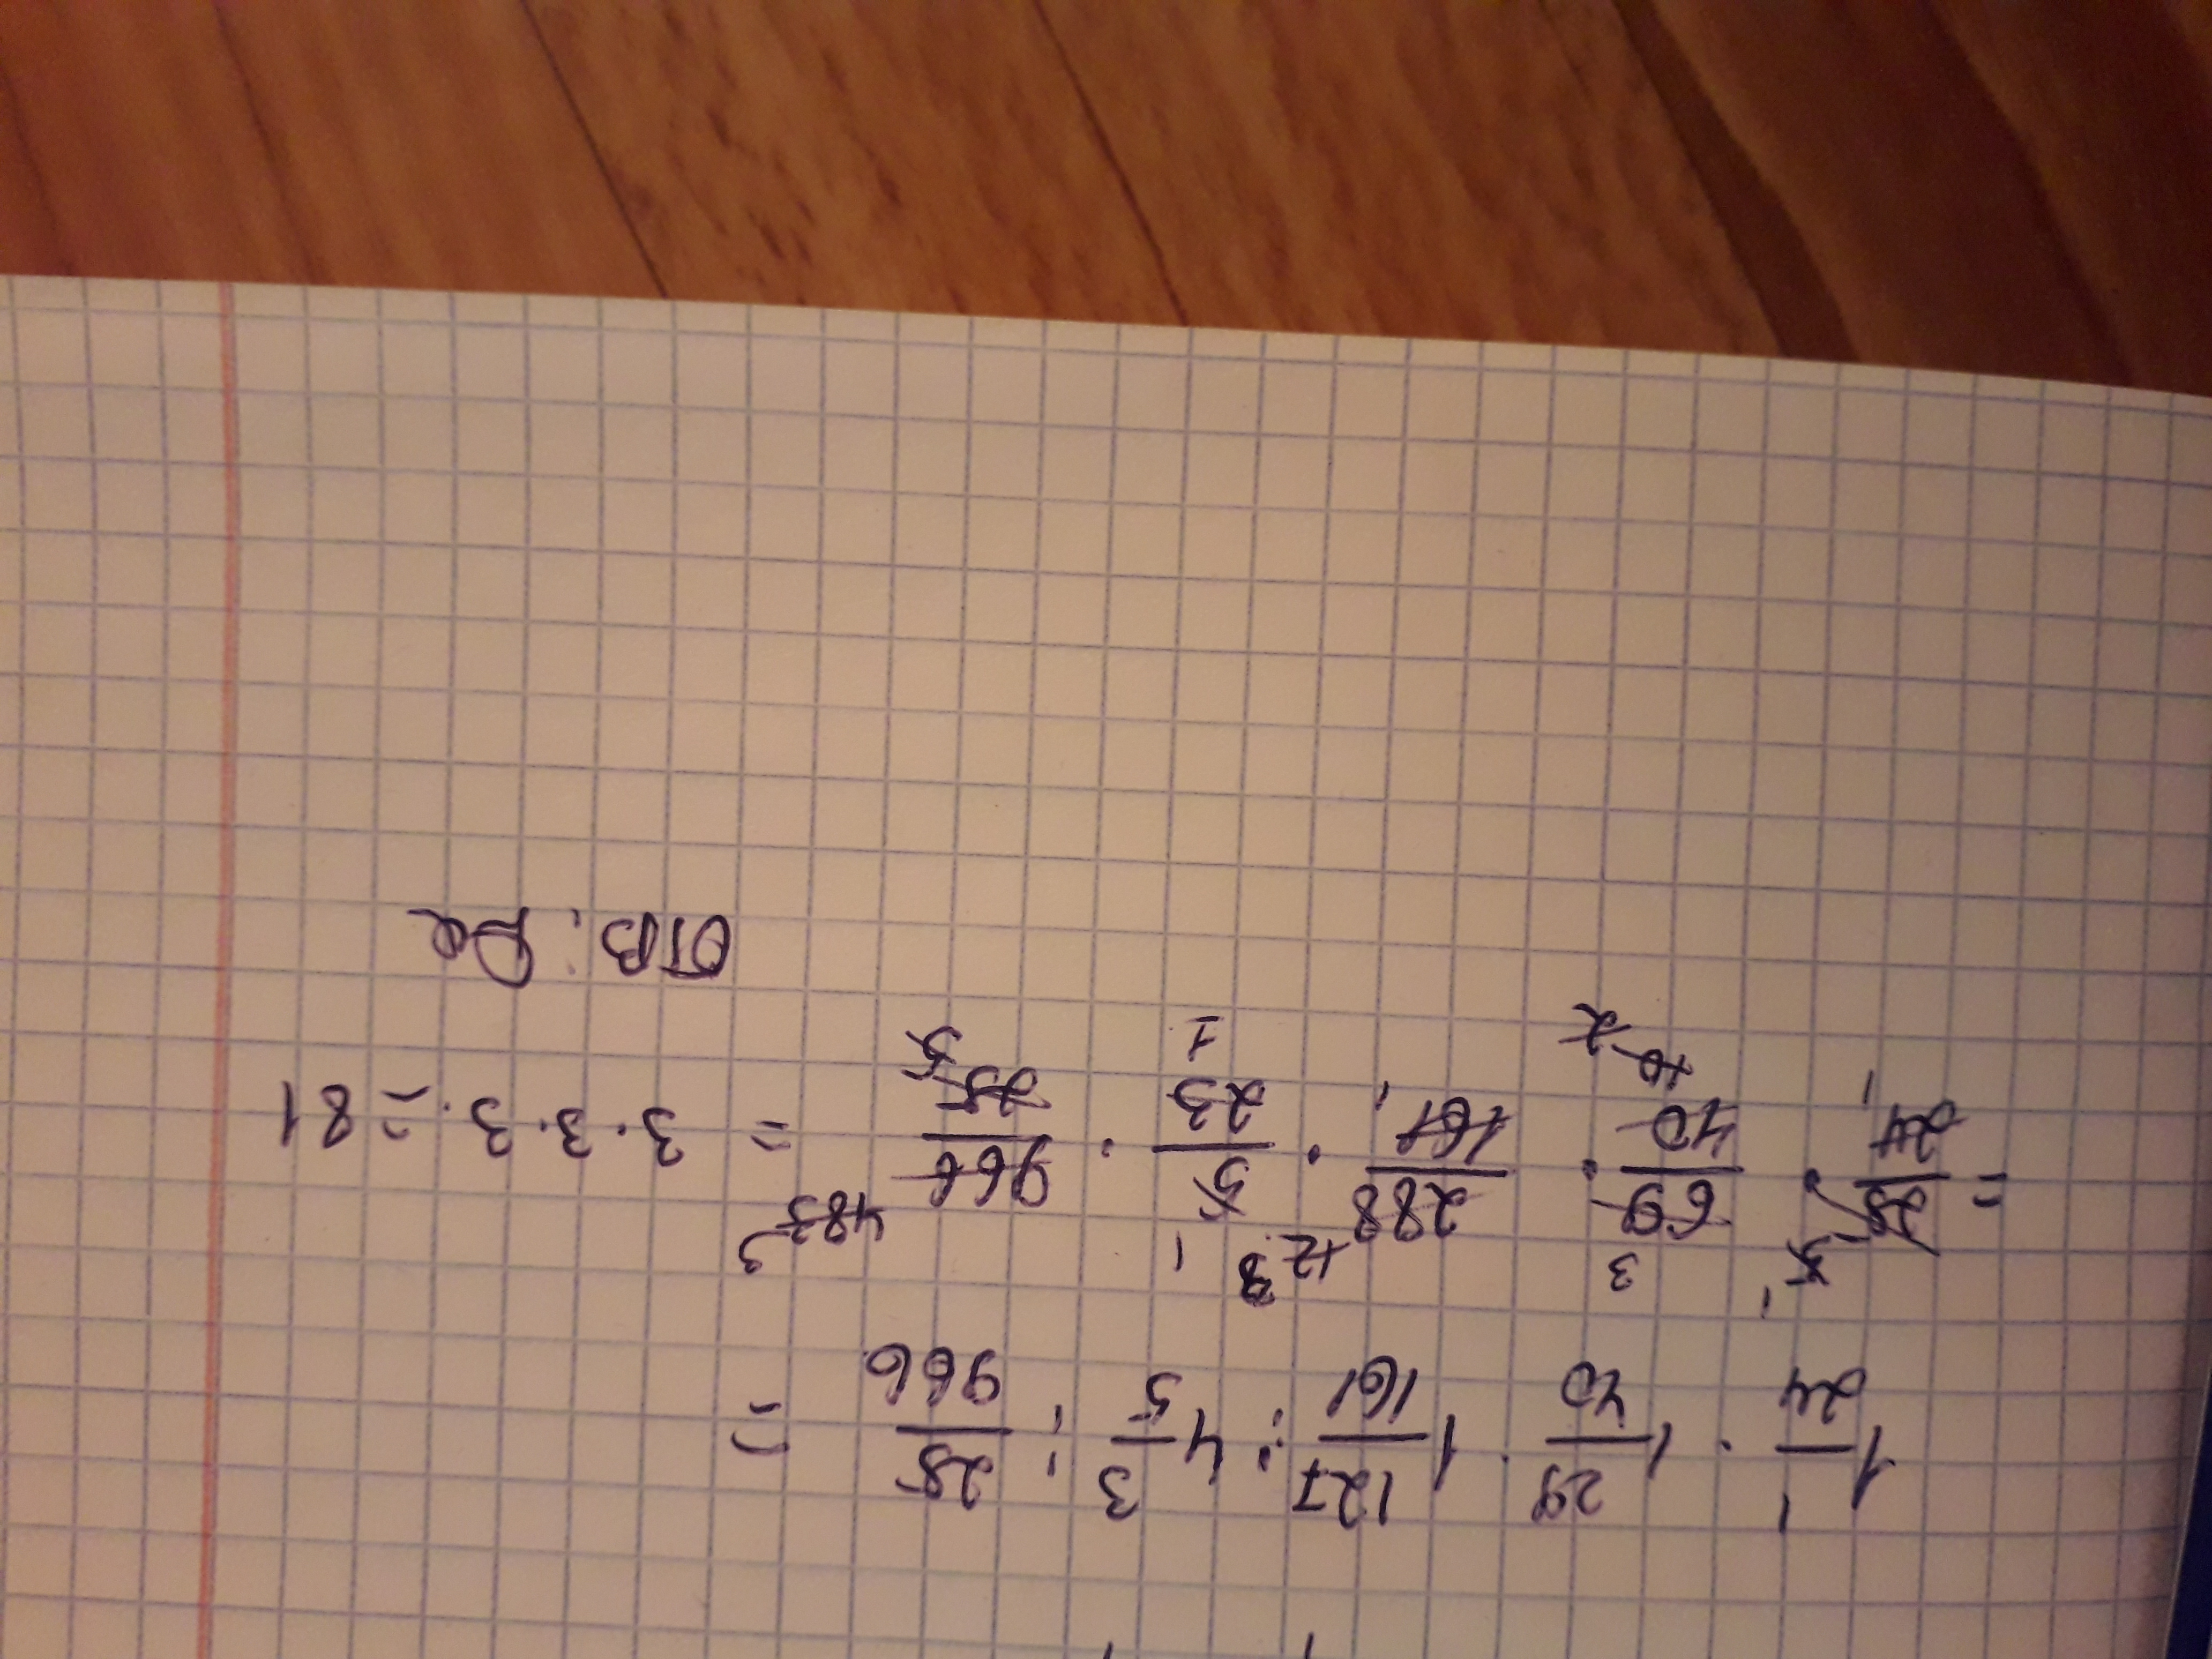 1 1/24 · 1 29/40 · 1 127/161 : 4 3/5 : 25/966 =
= 25/24 · 69/40 · 288/161 · 5/23 · 966/25 = 3 · 3 · 3 · 3 = 81
ОТВ: Да